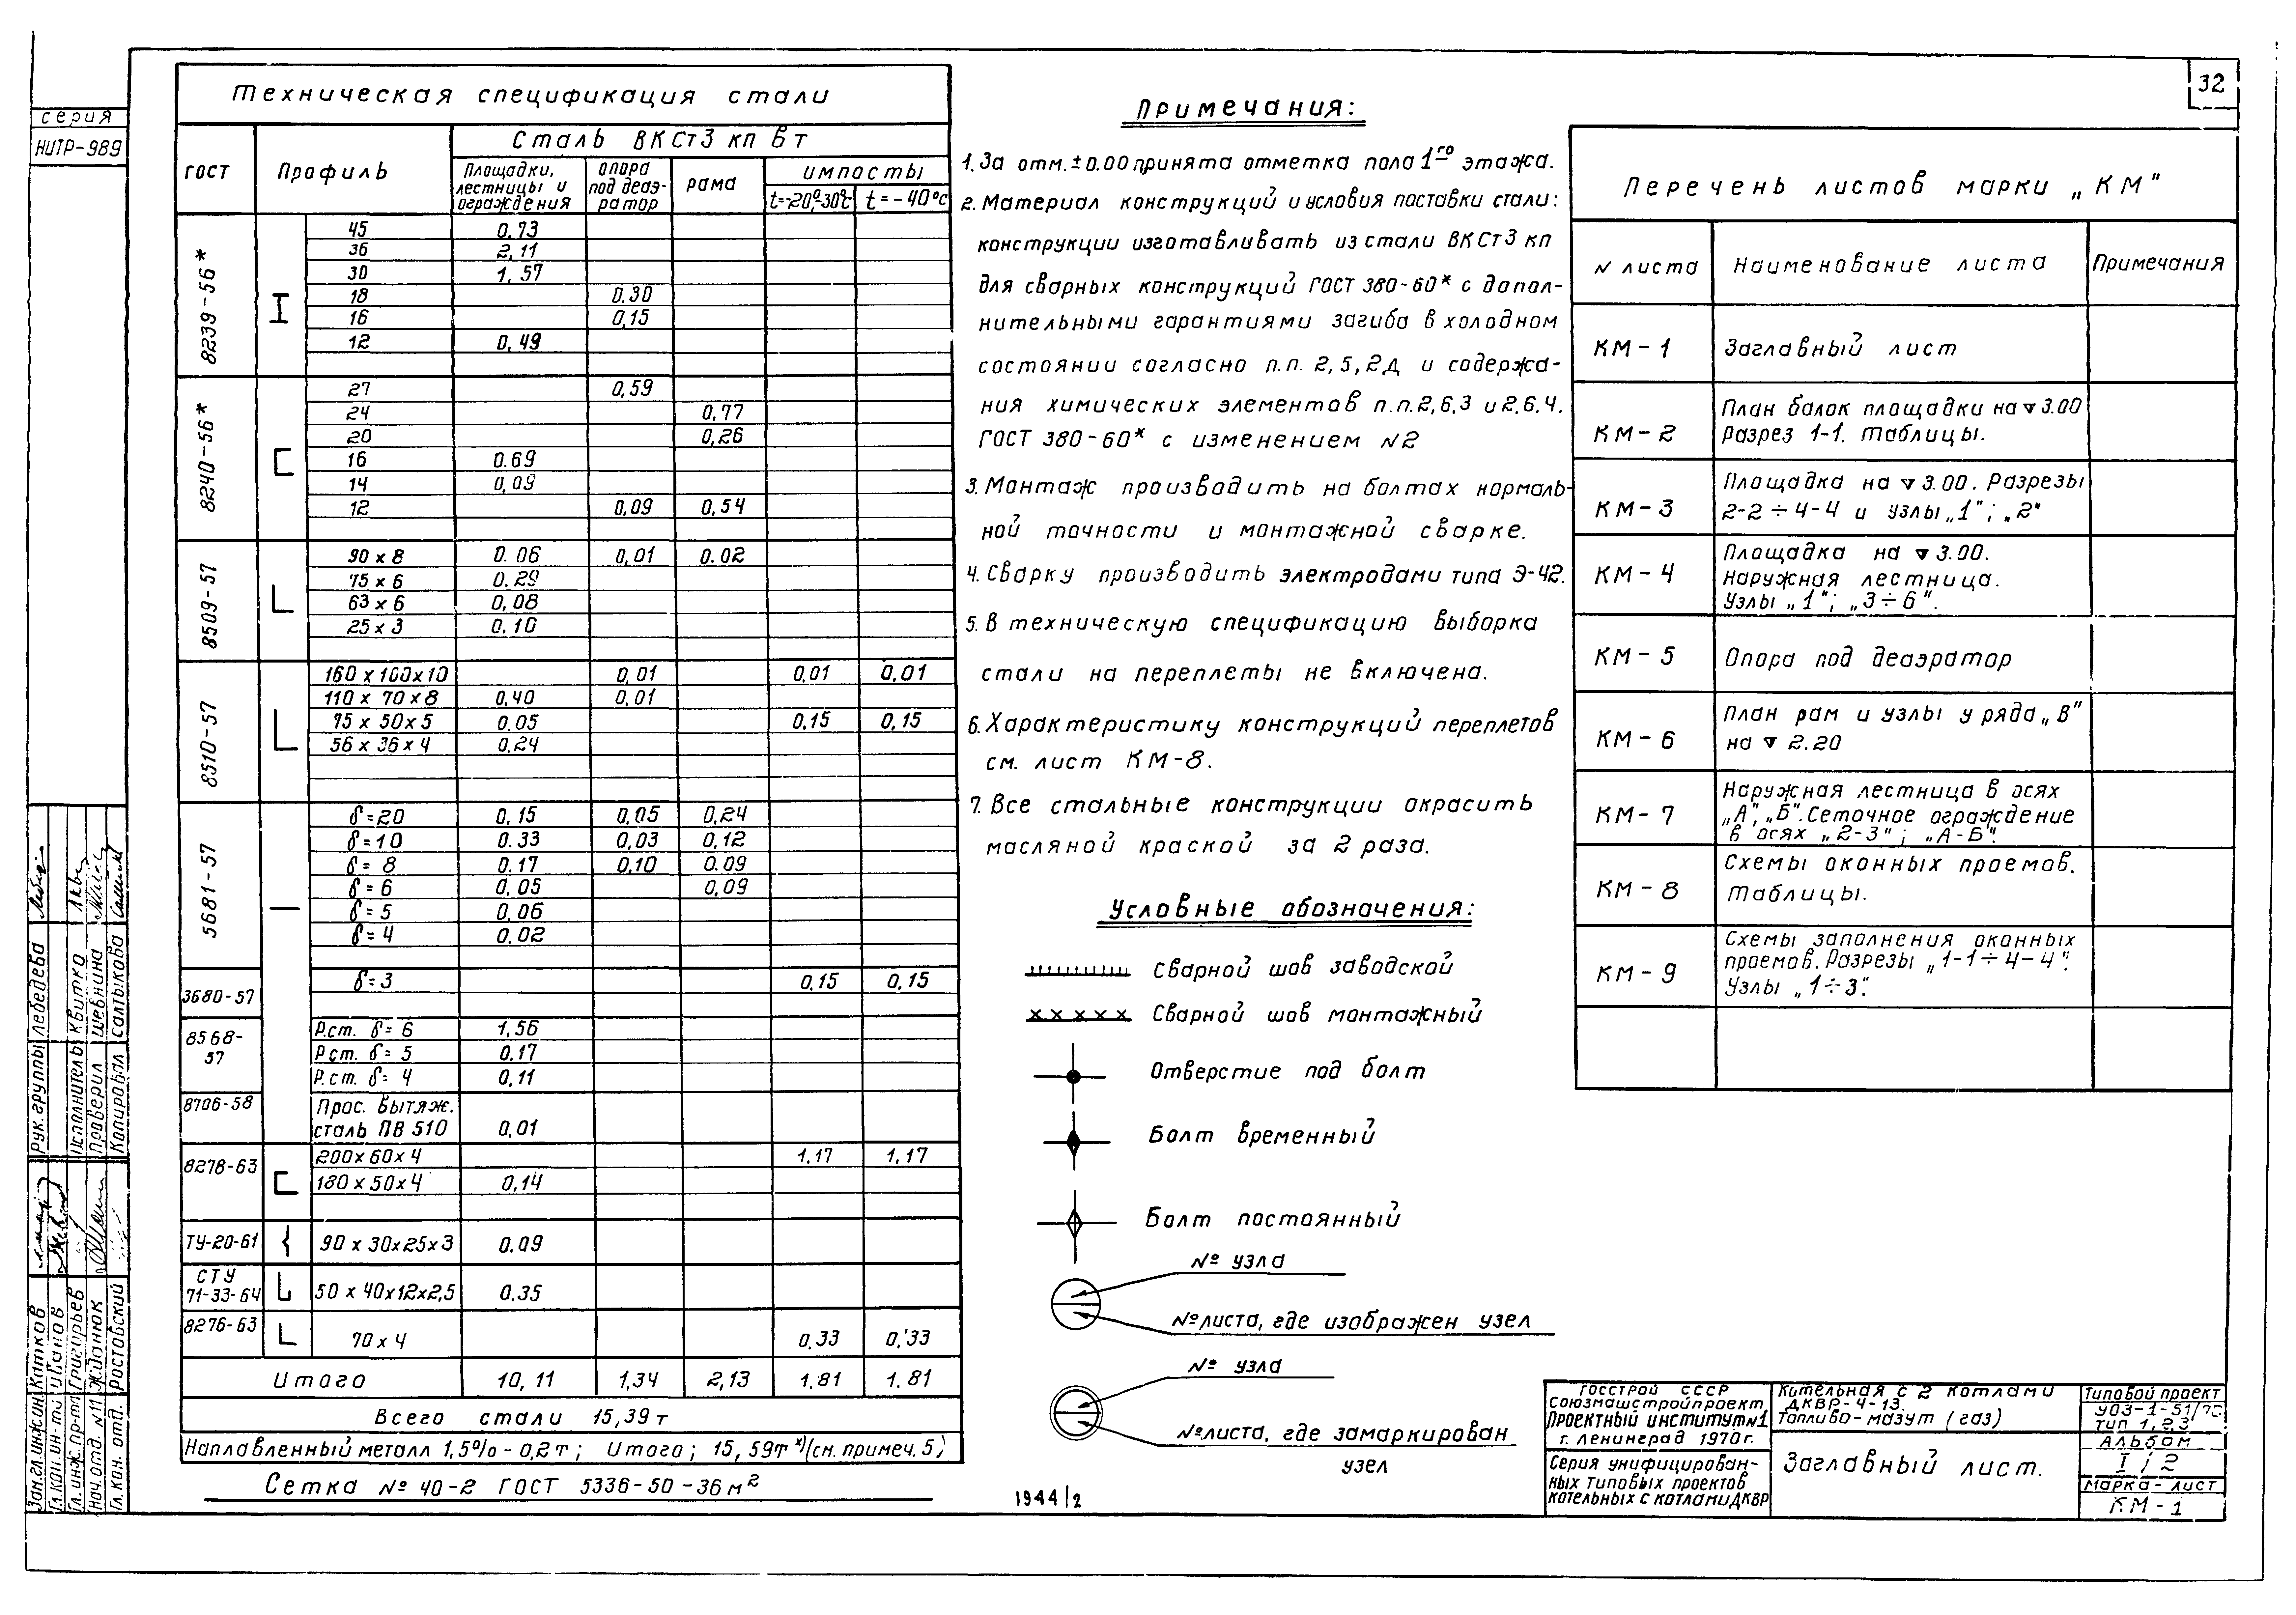 32
серия
НИТР-989
Техническая спецификация стали
ГОСТ
Профиль
Сталь ВКСт3 кп в т
Площадки, лестницы и ограждения
опора под деаэратор
рама
импосты
t=-20°÷-30°С
t=-40°С
8239-56*
45 0.73
36 2,11
30 1,57
18 0.30
16 0,15
12 0,49
8240-56*
27 0,59
24 0,77
20 0,26
16 0.69
14 0,09
12 0,09 0,54
8509-57
90 x 8 0.06 0,01 0.02
75 x 6 0.29
63 x 6 0,08
25 x 3 0.10
8510-57
160 x 100 x 10 0,01 0,01 0,01
110 x 70 x 8 0,40 0,01
75 x 50 x 5 0.05 0,15 0,15
56 x 36 x 4 0,24
5681-57
δ=20 0,15 0,05 0,24
δ=10 0.33 0,03 0,12
δ=8 0.17 0,10 0.09
δ=6 0.05 0,09
δ=5 0.06
δ=4 0.02
3680-57
δ=3 0.15 0,15
8568-57
Р.ст. δ=6 1,56
Р.ст. δ=5 0.17
Р.ст. δ=4 0,11
8706-58
Прос. вытяж.
сталь ПВ 510 0,01
8278-63
200x60x4 1.17 1,17
180x50x4 0,14
ТУ-20-61 90 x 30x25x3 0.09
СТУ
71-33-64 50 x 40x12x2,5 0.35
8276-63 70 x 4 0,33 0,33
Итого 10,11 1,34 2,13 1.81 1.81
Всего стали 15,39т
Наплавленный металл 1,5% - 0,2т; Итого; 15,59т х)(см. примеч. 5)
Сетка № 40-2 ГОСТ 5336-50-36м²
Примечания:
1. За отм. ±0.00 принята отметка пола 1го этажа.
2. Материал конструкций и условия поставки стали:
конструкции изготавливать из стали ВКСт3 кп
для сварных конструкций ГОСТ 380-60* с допол-
нительными гарантиями загиба в холодном
состоянии согласно п.п. 2,5,2д и содержа-
ния химических элементов п.п.2,6,3 и 2.6.4.
ГОСТ 380-60* с изменением №2
3. Монтаж производить на болтах нормаль-
ной точности и монтажной сварке.
4. Сварку производить электродами типа Э-42.
5. В техническую спецификацию выборка
стали на переплеты не включена.
6. Характеристику конструкций переплетов
см. лист КМ-8.
7. Все стальные конструкции окрасить
масляной краской за 2 раза.
Условные обозначения:
Сварной шов заводской
Сварной шов монтажный
Отверстие под болт
Болт временный
Болт постоянный
№ узла
№ листа, где изображен узел
№ узла
№ листа, где замаркирован
узел
1944/2
Перечень листов марки „КМ"
N листа Наименование листа Примечания
КМ-1 Заглавный лист
КМ-2 План балок площадки на ▽ 3.00
Разрез 1-1. Таблицы.
КМ-3 Площадка на ▽ 3.00. Разрезы
2-2÷4-4 и узлы „1"; „2"
КМ-4 Площадка на ▽ 3.00.
Наружная лестница.
Узлы „1"; „3÷6".
КМ-5 Опора под деаэратор
КМ-6 План рам и узлы у ряда „В"
на ▽ 2.20
КМ-7 Наружная лестница в осях
„А", „Б". Сеточное ограждение
в осях „2-3"; „А-Б".
КМ-8 Схемы оконных проемов.
Таблицы.
КМ-9 Схемы заполнения оконных
проемов. Разрезы „1-1÷4-4".
Узлы „1÷3".
Госстрой СССР
Союзмашстройпроект
Проектный институт №1
г. Ленинград 1970г.
Серия унифицирован-
ных типовых проектов
котельных с котлами ДКВР
Котельная с 2 котлами
ДКВР-4-13.
Топливо-мазут (газ)
Заглавный лист.
Типовой проект
903-1-51/70
тип 1,2,3
Альбом
I/2
Марка-лист
КМ-1
Рук. группы Лебедева
Исполнитель Квитко
Проверил Шевнина
Копировал Салтыкова
Зам. гл. инжен. Катков
Гл. кон. ин-та Иванов
Гл. инж. пр-та Григорьев
Нач. отд. N11 Жданюк
Гл. кон. отд. Ростовский